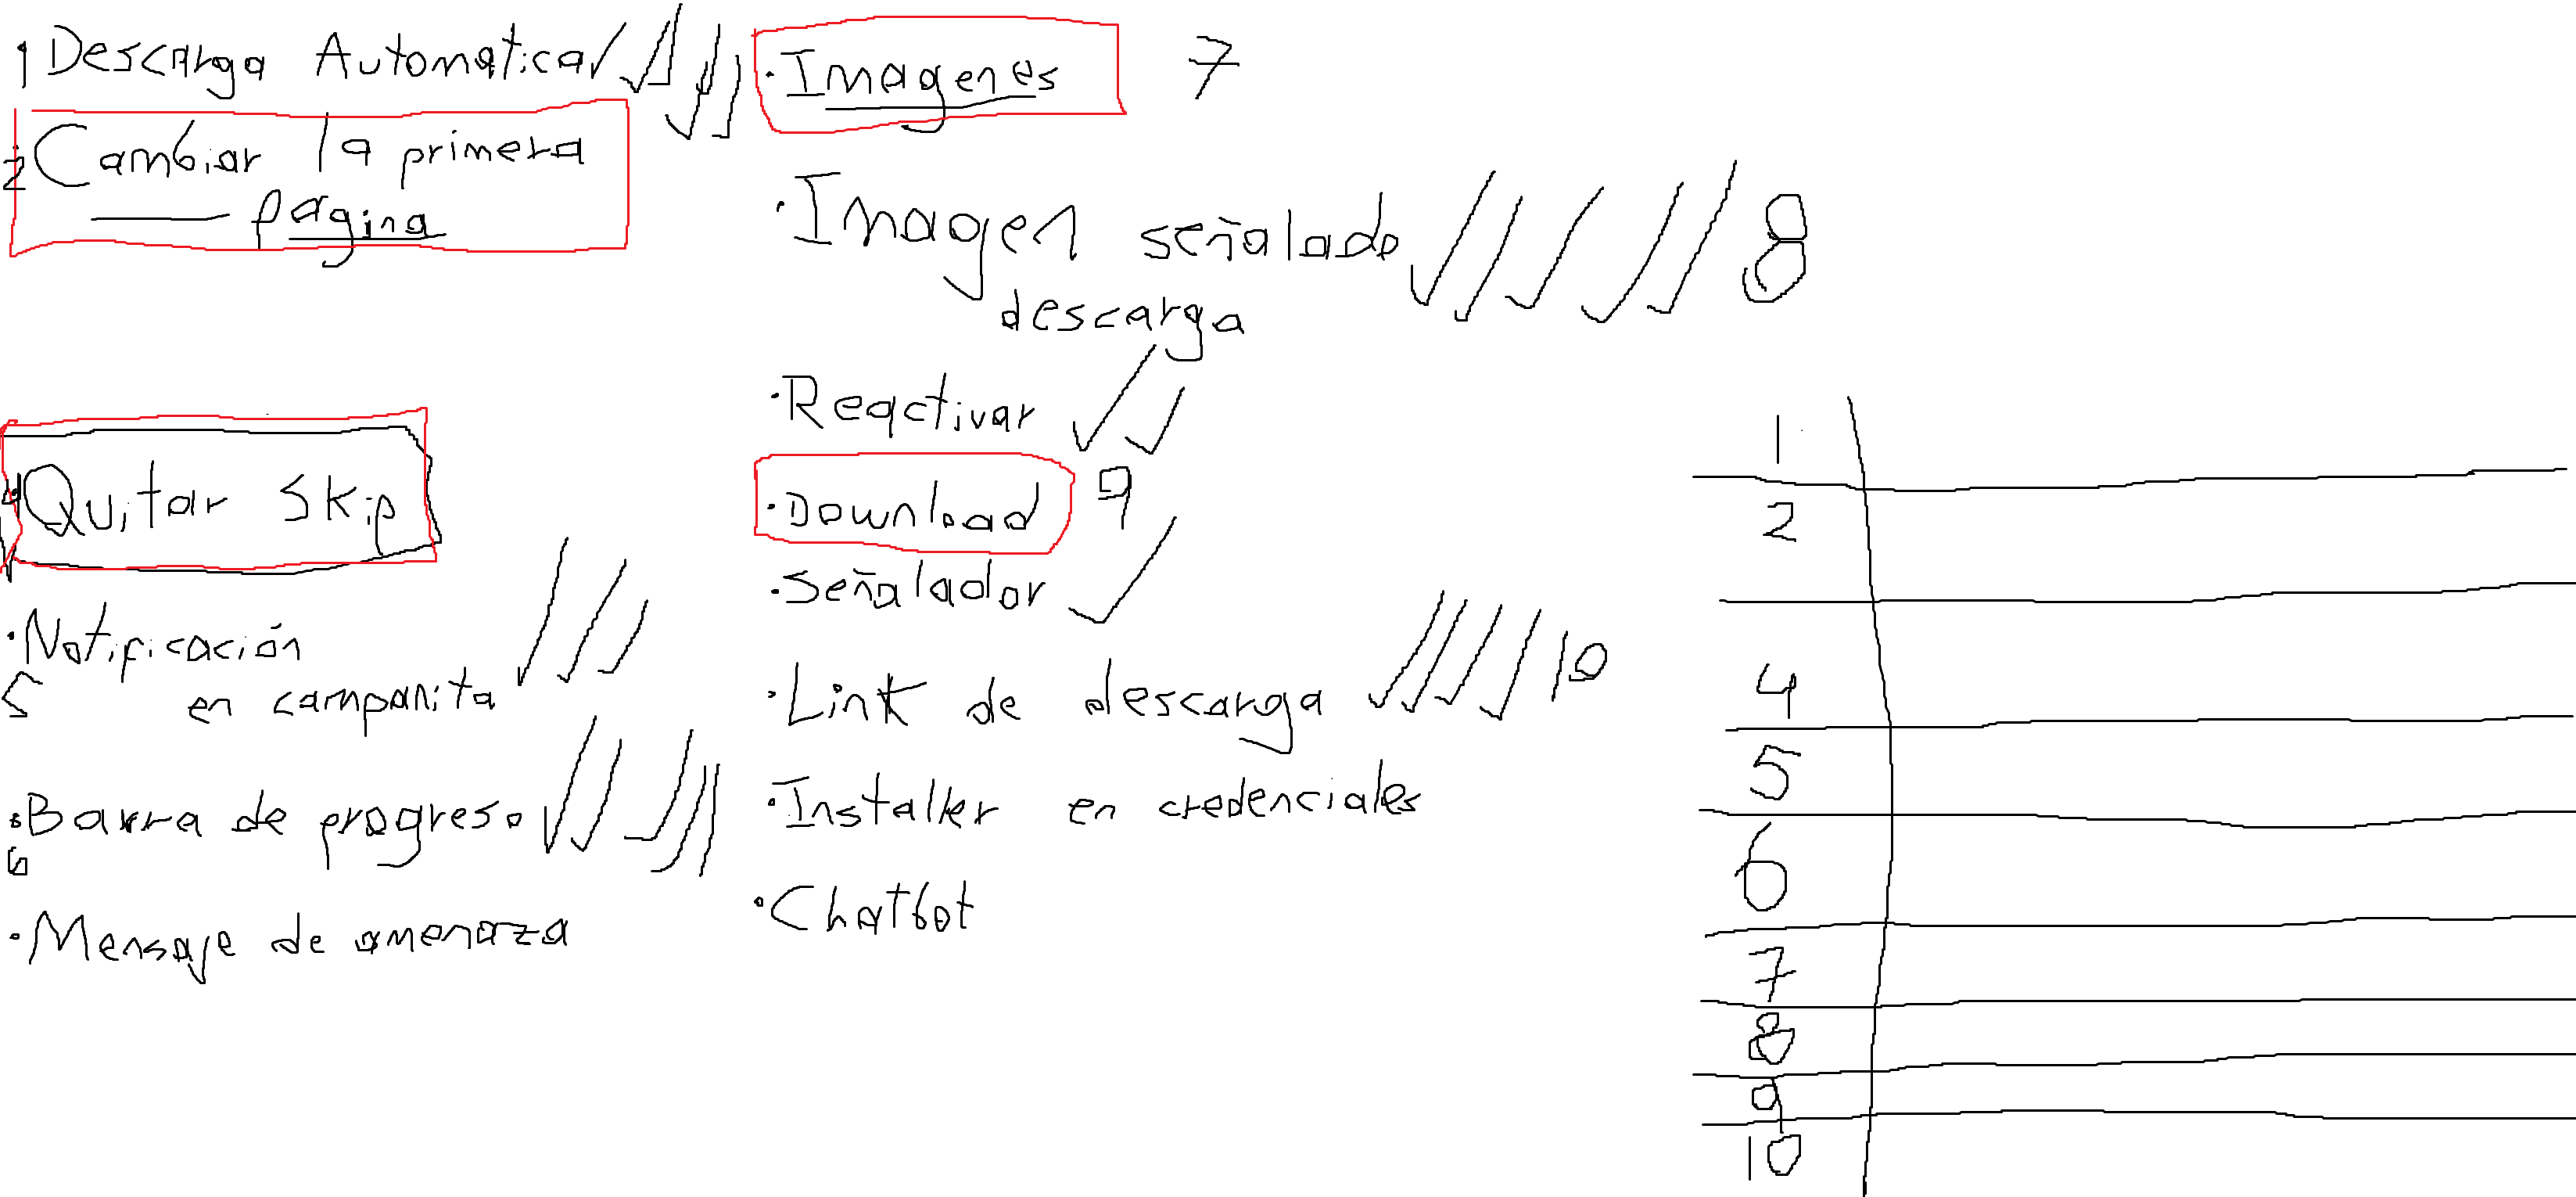 1 Descarga Automatica
2 Cambiar la primera
pagina
4 Quitar Skip
·Notificación
5 en campanita
·Barra de progreso
6
·Mensaje de amenaza
·Imagenes 7
·Imagen señalado 8
descarga
·Reactivar
·Download 9
·Señalador
·Link de descarga 10
·Installer en credenciales
·Chatbot
1
2
4
5
6
7
8
9
10